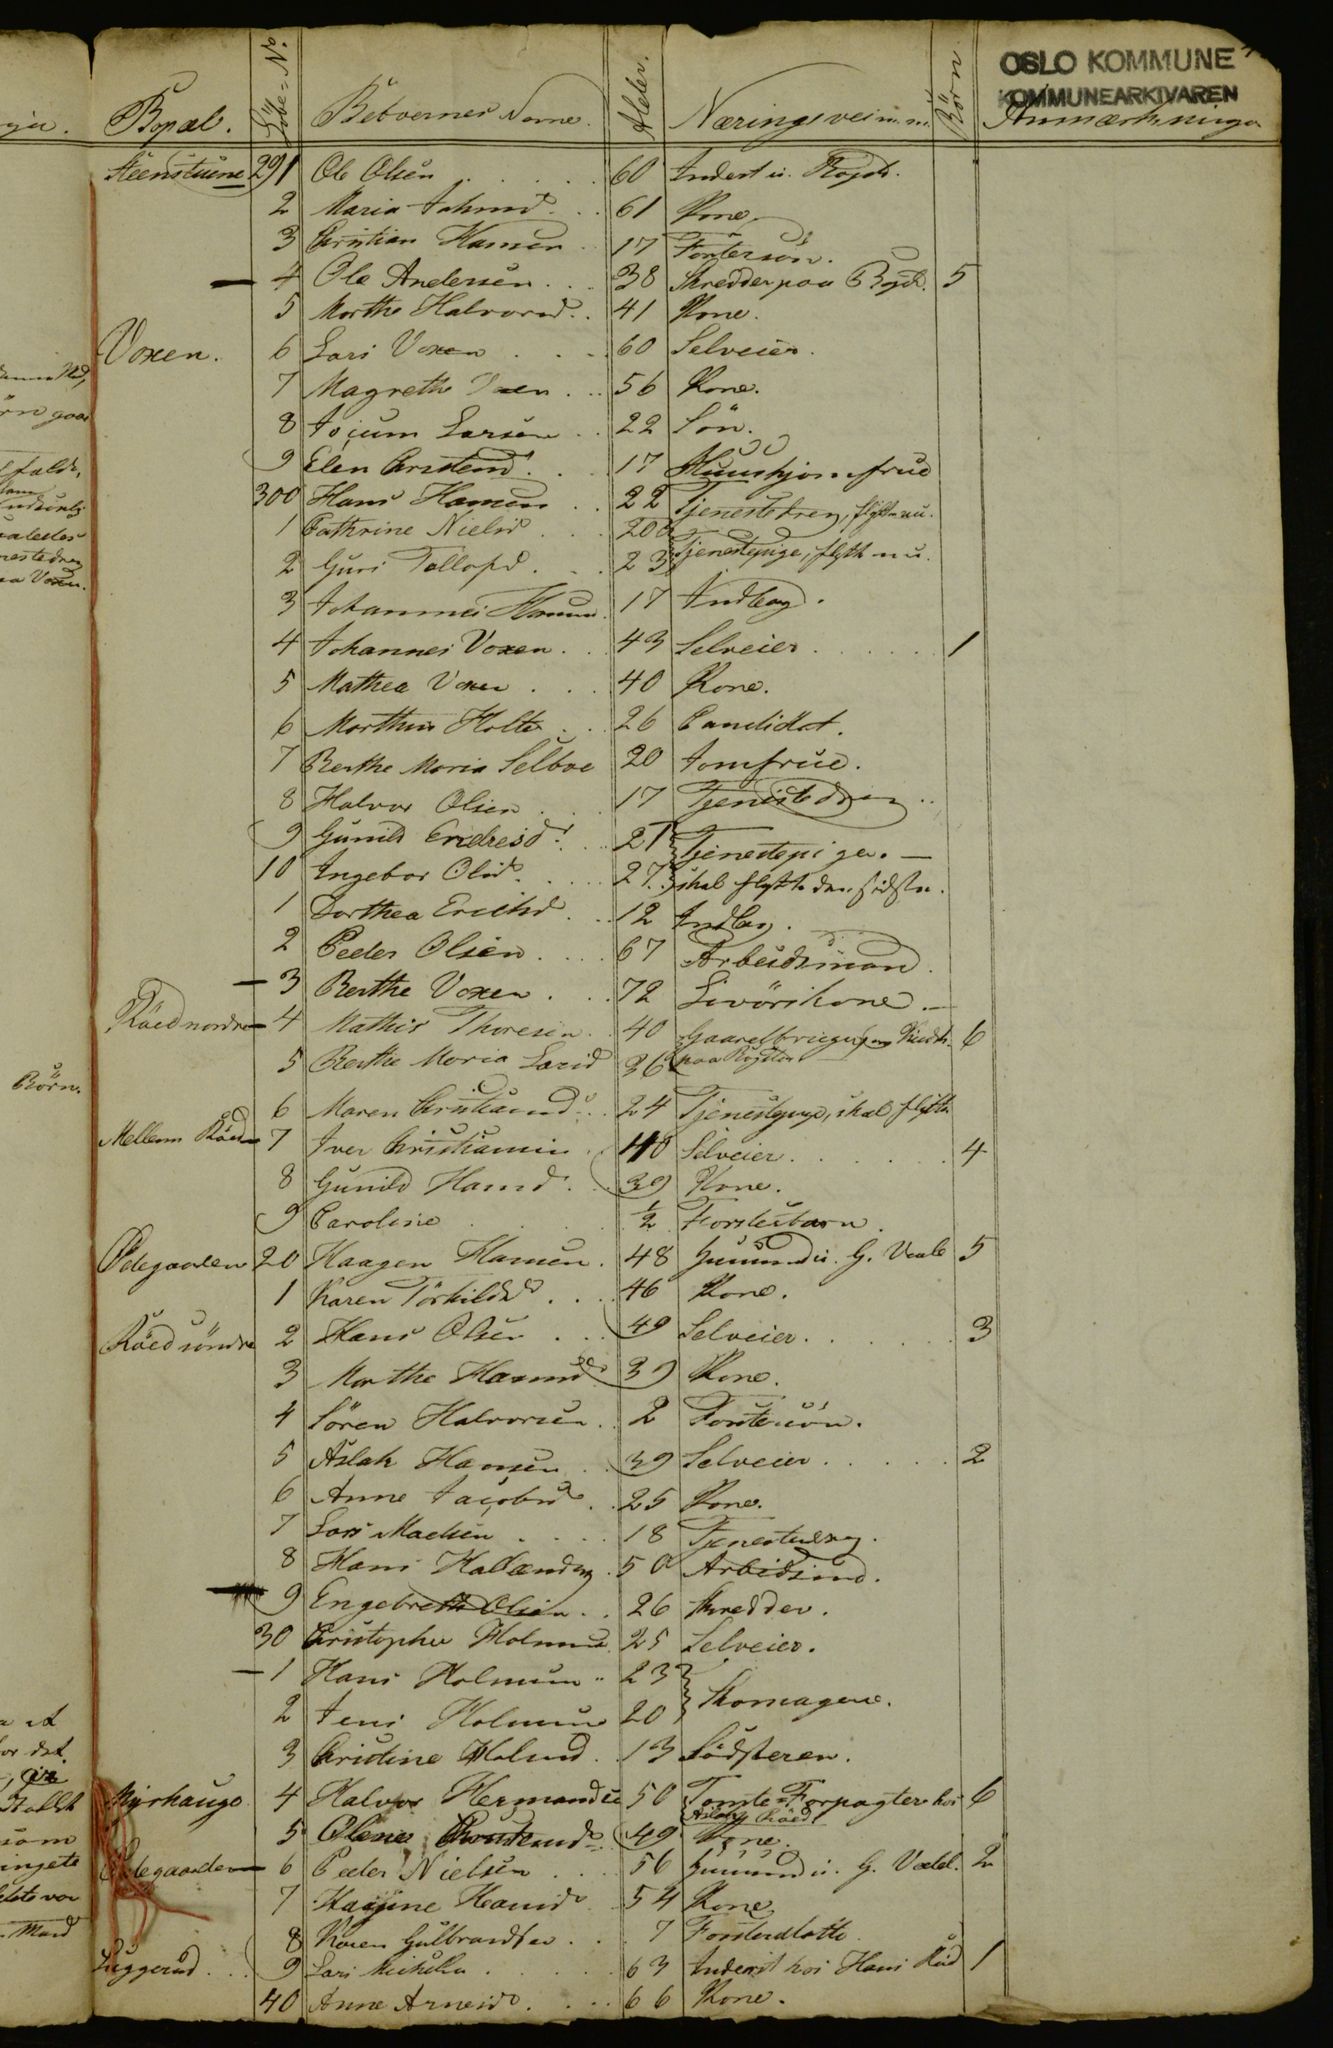 OSLO KOMMUNE
KOMMUNEARKIVAREN
Bopæl. Löbe-No. Beboernes Navne. Alder. Næringsvei m.m. Börn Anmærkninger
Steenstuene 291 Ole Olsen 60 Inderst u. Bogst.
2 Maria Johnsd. 61 Kone
3 Christian Hansen 17 Fostersön.
4 Ole Andersen 38 Skredder paa Bogst. 5
5 Marthe Halvorsd. 41 Kone.
Voxen. 6 Lars Voxen 60 Selveier.
7 Magrethe Voxen 56 Kone.
8 Jocum Larsen 22 Sön.
9 Elen Christensd. 17 Huusjomfrue
300 Hans Hansen 22 Tjenestedreng, flytter nu.
1 Cathrine Nielsd. 20
2 Guri Tollofsd. 23 Tjenestepige, flytte nu.
3 Johannes Hansen 17 Indlag.
4 Johannes Voxen 43 Selveier 1
5 Mathea Voxen 40 Kone.
6 Morthen Holter 26 Candidat.
7 Berthe Maria Selboe 20 Jomfrue.
8 Halvor Olsen 17 Tjenestedreng
9 Gunild Endresd. 21 Tjenestepiger.
10 Ingebor Olsd. 27 skal flytte den sidste.
1 Dorthea Erichsd. 12 Indlag.
2 Peder Olsen 67 Arbeidsmand.
3 Berthe Voxen 72 Livörskone
Röed nordre 4 Mathis Thoresen 40 Gaardbruger 6
5 Berthe Maria Larsd 36 paa Bogstad
6 Maren Christiansd. 24 Tjenestepige, skal flytte
Mellem Röed 7 Iver Christiansen 40 Selveier 4
8 Gunild Hansd. 39 Kone.
9 Caroline 1/2 Fosterbarn.
Ødegaarden 20 Haagen Hansen 48 Huusmd. u. G. Voxle 5
1 Karen Törkildsd. 46 Kone.
Röed söndre 2 Hans Olsen 49 Selveier 3
3 Marthe Hansd. 39 Kone.
4 Sören Halvorsen 2 Fostersön.
5 Aslak Hansen 39 Selveier 2
6 Anne Jacobsd. 25 Kone.
7 Lars Madsen 18 Tjenestedreng.
8 Hans Hallænding 50 Arbeidsmd.
9 Engebreth Olsen 26 Skredder.
30 Christopher Holmsen 25 Selveier.
1 Hans Holmsen 23
2 Jens Holmsen 20 Skomagere.
3 Christine Holmsd. 13 Södsteren.
Myrhaugo 4 Halvor Hermandsen 50 Tomte-Forpagter hos 6
Aslag Röed
5 Olene 49 Kone.
Ødegaarden 6 Peder Nielsen 56 Huusmd. u. G. 2
7 Hansd. 54 Kone
8 Karen Gulbrandsen 7 Fosterdatte
Luggerud 9 Lars Michelsen 63 Inderst hos Hans Röd 1
40 Anne Arnesd. 66 Kone.
Börn.